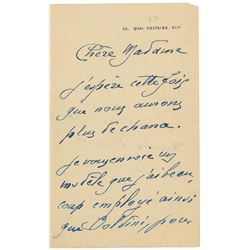 29, QUAI VOLTAIRE, VIIe
Chère Madame
j'espère cette fois
que nous aurons
plus de chance.
Je vous envoie un
modèle que j'ai beau
coup employé ainsi
que Boldini, pour